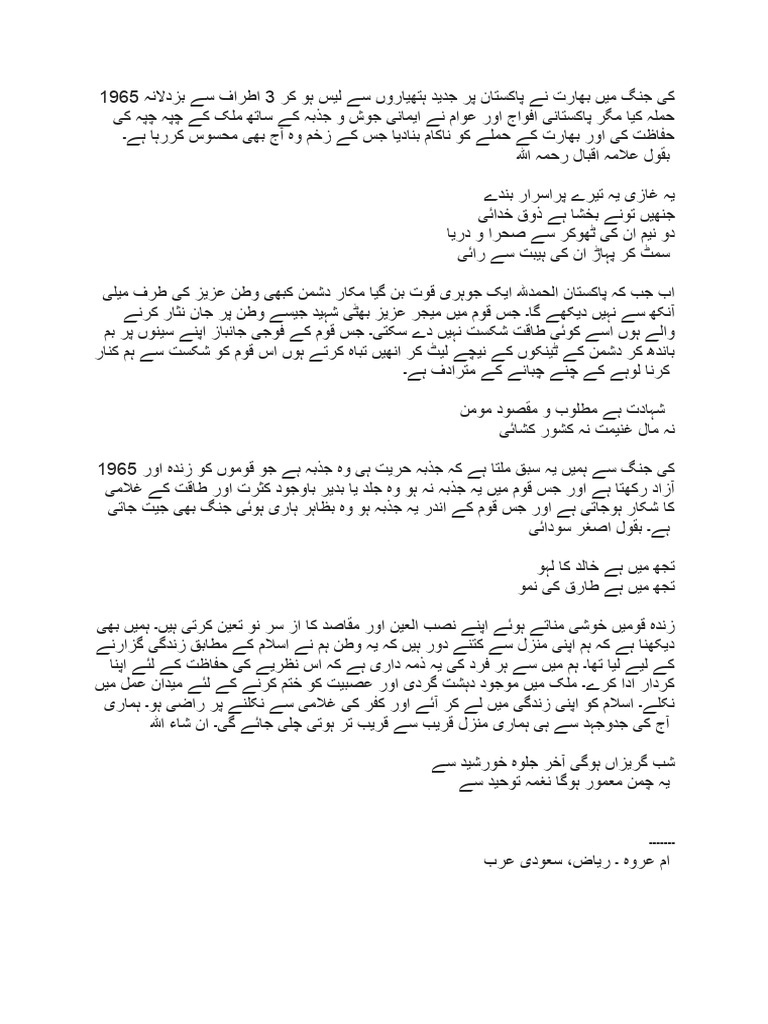 1965 کی جنگ میں بھارت نے پاکستان پر جدید ہتھیاروں سے لیس ہو کر 3 اطراف سے بزدلانہ
حملہ کیا مگر پاکستانی افواج اور عوام نے ایمانی جوش و جذبہ کے ساتھ ملک کے چپہ چپہ کی
حفاظت کی اور بھارت کے حملے کو ناکام بنادیا جس کے زخم وہ آج بھی محسوس کررہا ہے۔
بقول علامہ اقبال رحمہ اللہ
یہ غازی یہ تیرے پراسرار بندے
جنھیں تونے بخشا ہے ذوق خدائی
دو نیم ان کی ٹھوکر سے صحرا و دریا
سمٹ کر پہاڑ ان کی ہیبت سے رائی
اب جب کہ پاکستان الحمدللہ ایک جوہری قوت بن گیا مکار دشمن کبھی وطن عزیز کی طرف میلی
آنکھ سے نہیں دیکھے گا۔ جس قوم میں میجر عزیز بھٹی شہید جیسے وطن پر جان نثار کرنے
والے ہوں اسے کوئی طاقت شکست نہیں دے سکتی۔ جس قوم کے فوجی جانباز اپنے سینوں پر بم
باندھ کر دشمن کے ٹینکوں کے نیچے لیٹ کر انھیں تباہ کرتے ہوں اس قوم کو شکست سے ہم کنار
کرنا لوہے کے چنے چبانے کے مترادف ہے۔
شہادت ہے مطلوب و مقصود مومن
نہ مال غنیمت نہ کشور کشائی
1965 کی جنگ سے ہمیں یہ سبق ملتا ہے کہ جذبہ حریت ہی وہ جذبہ ہے جو قوموں کو زندہ اور
آزاد رکھتا ہے اور جس قوم میں یہ جذبہ نہ ہو وہ جلد یا بدیر باوجود کثرت اور طاقت کے غلامی
کا شکار ہوجاتی ہے اور جس قوم کے اندر یہ جذبہ ہو وہ بظاہر ہاری ہوئی جنگ بھی جیت جاتی
ہے۔ بقول اصغر سودائی
تجھ میں ہے خالد کا لہو
تجھ میں ہے طارق کی نمو
زندہ قومیں خوشی مناتے ہوئے اپنے نصب العین اور مقاصد کا از سر نو تعین کرتی ہیں۔ ہمیں بھی
دیکھنا ہے کہ ہم اپنی منزل سے کتنے دور ہیں کہ یہ وطن ہم نے اسلام کے مطابق زندگی گزارنے
کے لیے لیا تھا۔ ہم میں سے ہر فرد کی یہ ذمہ داری ہے کہ اس نظریے کی حفاظت کے لئے اپنا
کردار ادا کرے۔ ملک میں موجود دہشت گردی اور عصبیت کو ختم کرنے کے لئے میدان عمل میں
نکلے۔ اسلام کو اپنی زندگی میں لے کر آئے اور کفر کی غلامی سے نکلنے پر راضی ہو۔ ہماری
آج کی جدوجہد سے ہی ہماری منزل قریب سے قریب تر ہوتی چلی جائے گی۔ ان شاء اللہ
شب گریزاں ہوگی آخر جلوہ خورشید سے
یہ چمن معمور ہوگا نغمہ توحید سے
-------
ام عروہ ۔ ریاض، سعودی عرب